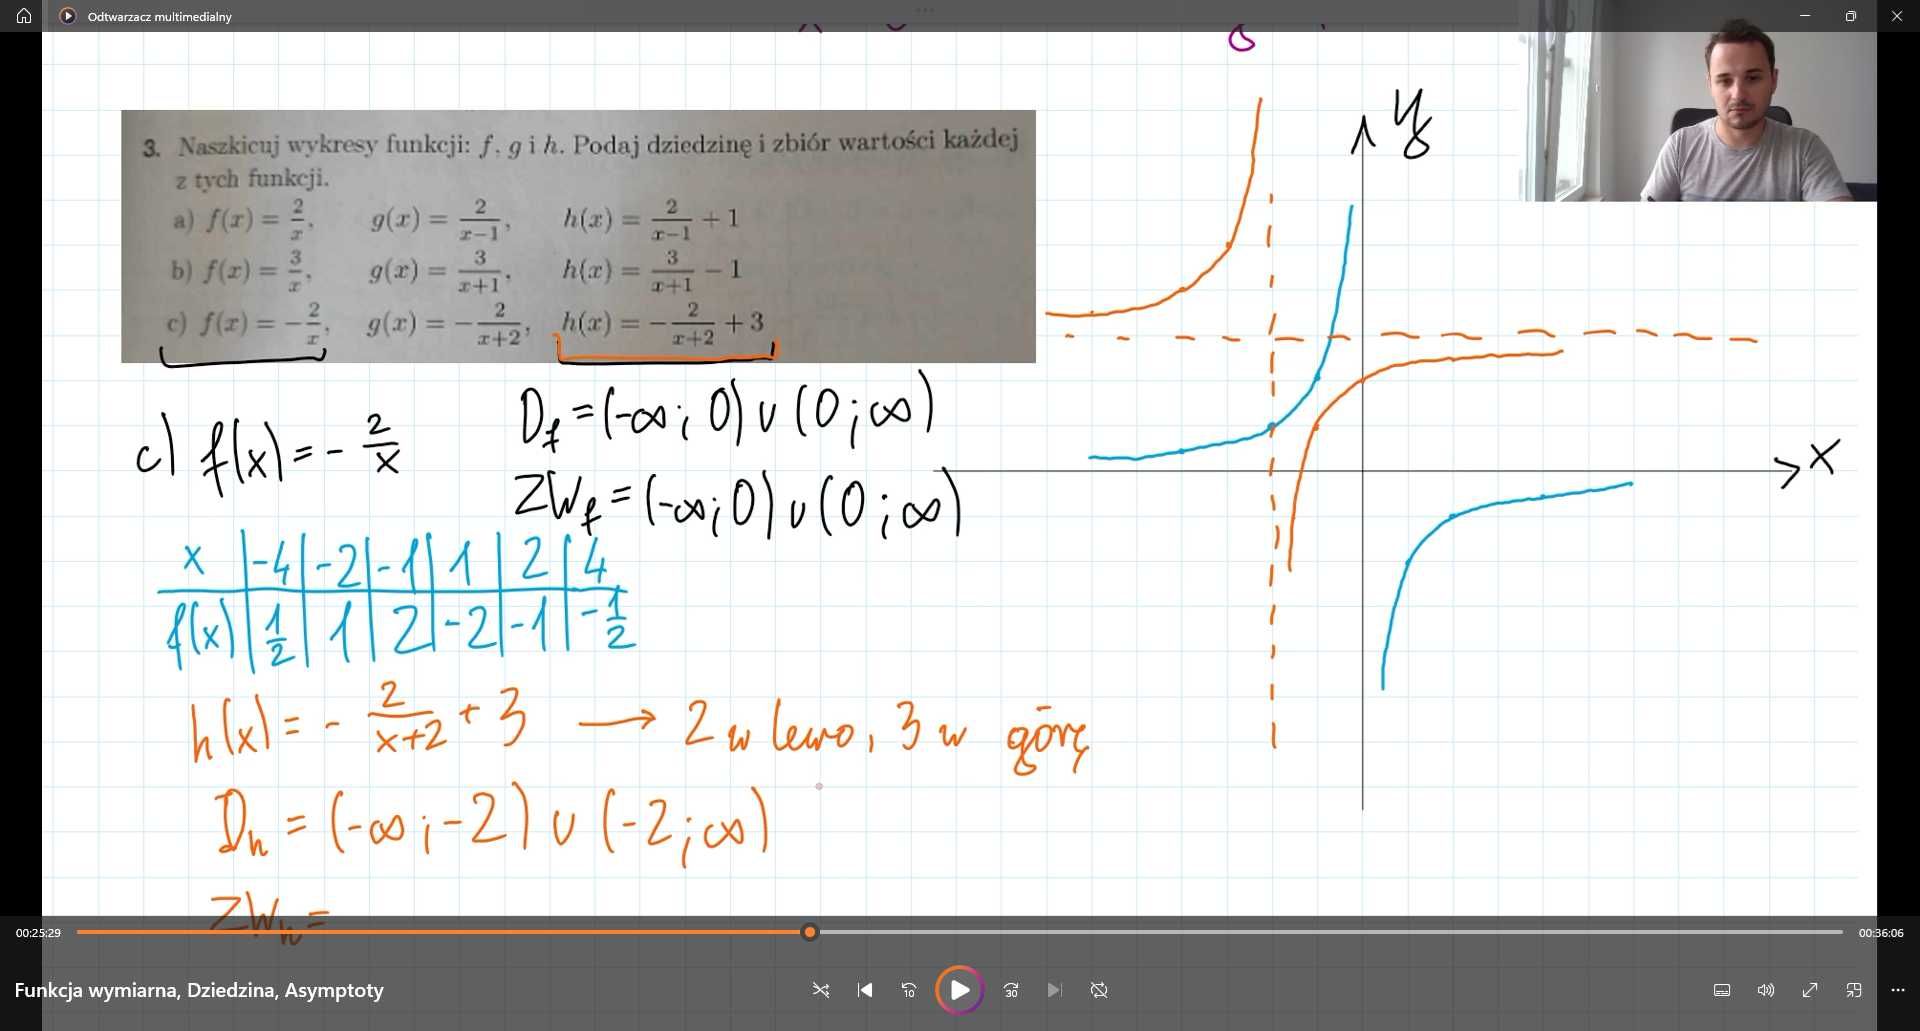 Odtwarzacz multimedialny
3. Naszkicuj wykresy funkcji: f, g i h. Podaj dziedzinę i zbiór wartości każdej
z tych funkcji.
a) f(x) = 2/x, g(x) = 2/(x-1), h(x) = 2/(x-1) + 1
b) f(x) = 3/x, g(x) = 3/(x+1), h(x) = 3/(x+1) - 1
c) f(x) = -2/x, g(x) = -2/(x+2), h(x) = -2/(x+2) + 3
y
x
c) f(x) = - 2/x
D_f = (-∞; 0) ∪ (0; ∞)
ZW_f = (-∞; 0) ∪ (0; ∞)
x | -4 | -2 | -1 | 1 | 2 | 4
f(x) | 1/2 | 1 | 2 | -2 | -1 | -1/2
h(x) = - 2/(x+2) + 3 → 2 w lewo, 3 w górę
D_h = (-∞; -2) ∪ (-2; ∞)
ZW_h =
00:25:29
00:36:06
Funkcja wymiarna, Dziedzina, Asymptoty
10
30